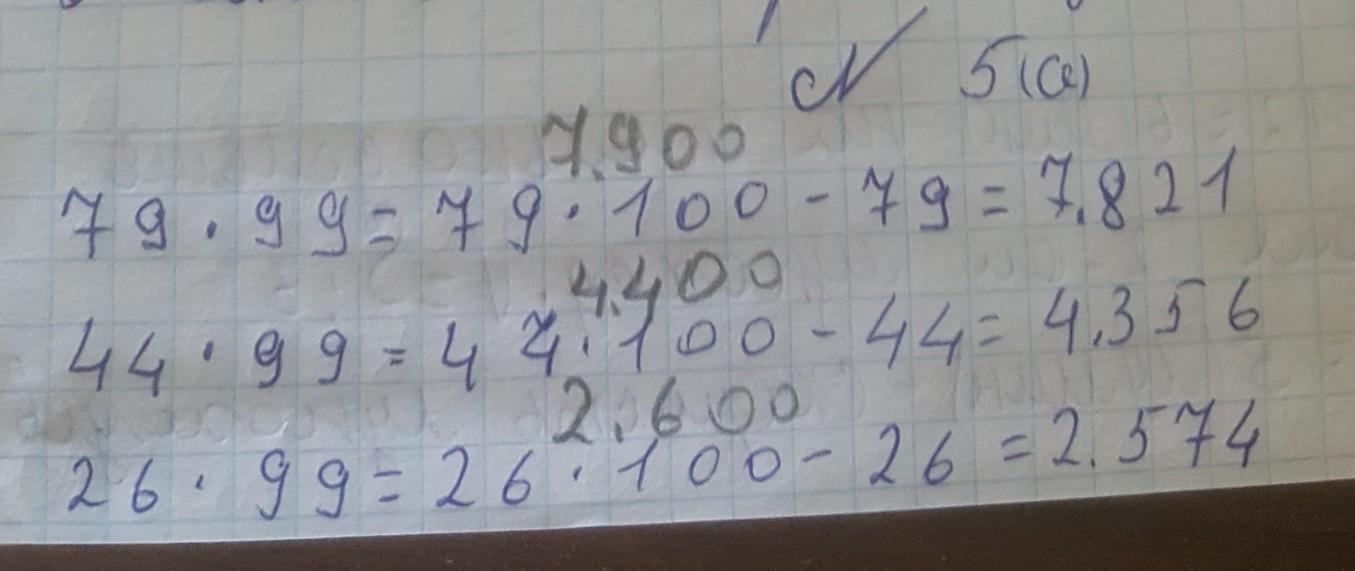 N 5(a)
7.900
79 · 99 = 79 · 100 - 79 = 7.821
4.400
44 · 99 = 44 · 100 - 44 = 4.356
2.600
26 · 99 = 26 · 100 - 26 = 2.574